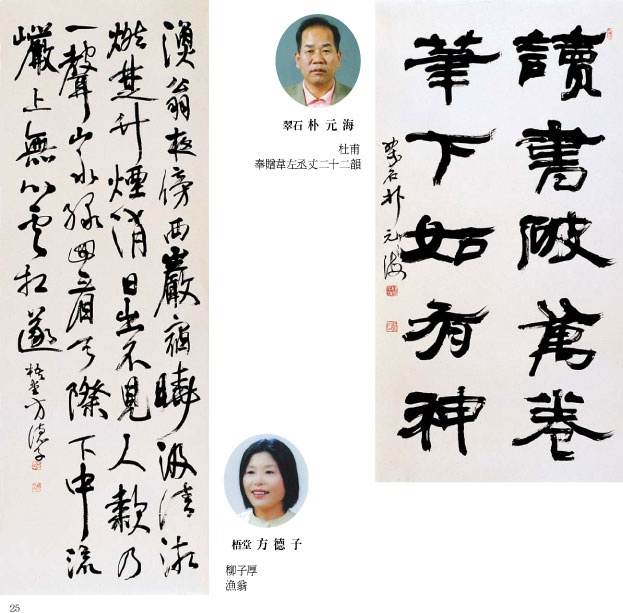 讀書破萬卷
筆下如有神
翠石朴元海
翠石 朴元海
杜甫
奉贈韋左丞丈二十二韻
漁翁夜傍西巖宿曉汲清湘
燃楚竹煙消日出不見人欸乃
一聲山水綠回看天際下中流
巖上無心雲相逐
梧堂方德子
梧堂 方德子
柳子厚
漁翁
25